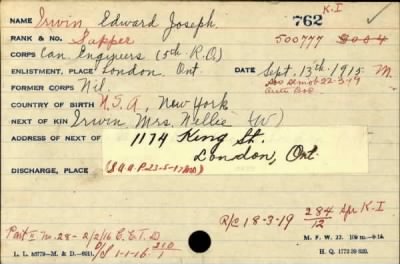 K.I
NAME Irwin Edward Joseph 762
RANK & NO. Sapper 500777
CORPS Can. Engineers (5th R.O.)
ENLISTMENT, PLACE London Ont. DATE Sept. 13th 1915 M
FORMER CORPS Nil. demob 22-3-19
COUNTRY OF BIRTH U.S.A, New York
NEXT OF KIN Irwin Mrs. Nellie (W)
ADDRESS OF NEXT OF 1174 King St.
London, Ont.
DISCHARGE, PLACE
R/c 18-3-19 284/12 Apr K.I
Part II No. 28- 2/2/16 E.E.T.D M. F. W. 22.
1-1-16 210/1 H. Q. 1772-39-820.
L. L. M. & D.